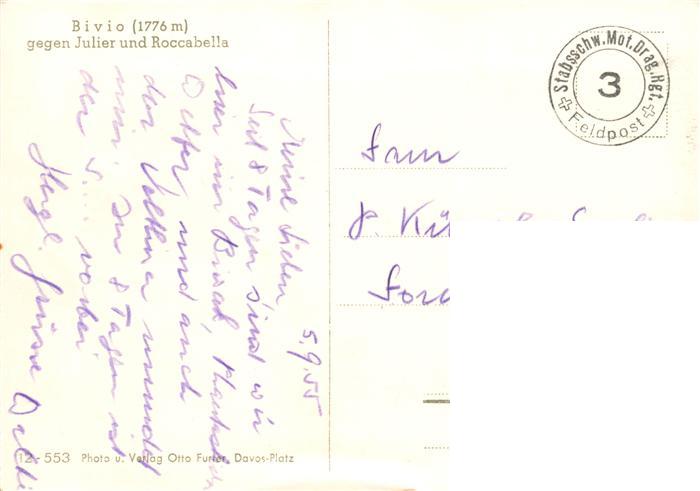 Bivio (1776 m)
gegen Julier und Roccabella
Stabsschw. Mot. Drag. Rgt.
3
Feldpost
5.9.55
Meine Lieben
Seit 8 Tagen sind wir
hier im Biwak,
Wetter und auch
der Veltliner mundet
mir. In 8 Tagen ist
der vorbei.
Herzl. Grüsse
12-553 Photo u. Verlag Otto Furter, Davos-Platz